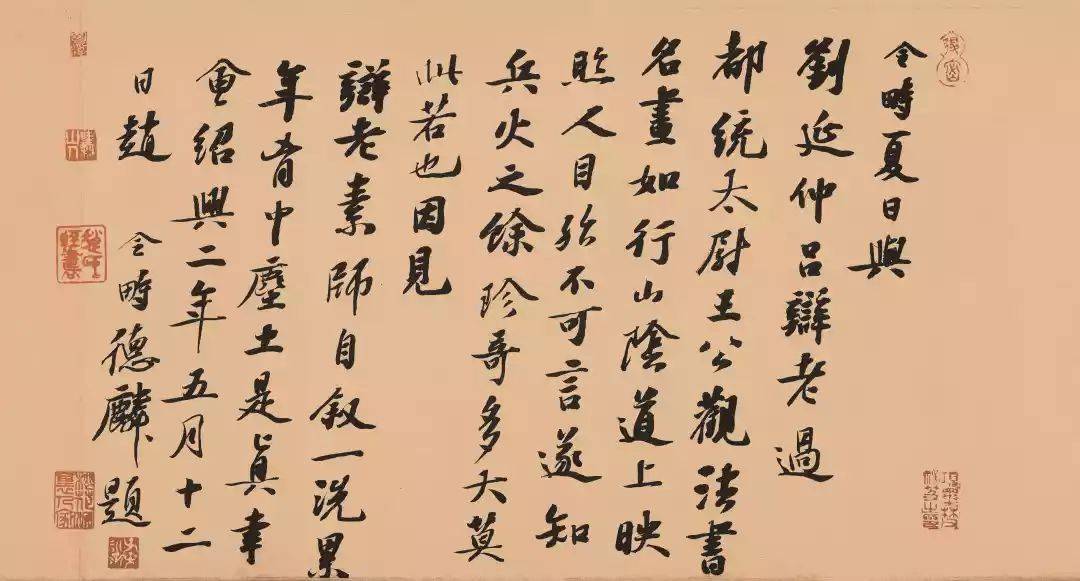 令畤夏日與
劉延仲呂辯老過
都統太尉王公觀法書
名畫如行山陰道上映
照人目殆不可言遂知
兵火之餘珍哥多大莫
此若也因見
辯老素師自叙一洗累
年胷中塵土是真幸
會紹興二年五月十二
日趙 令畤德麟題